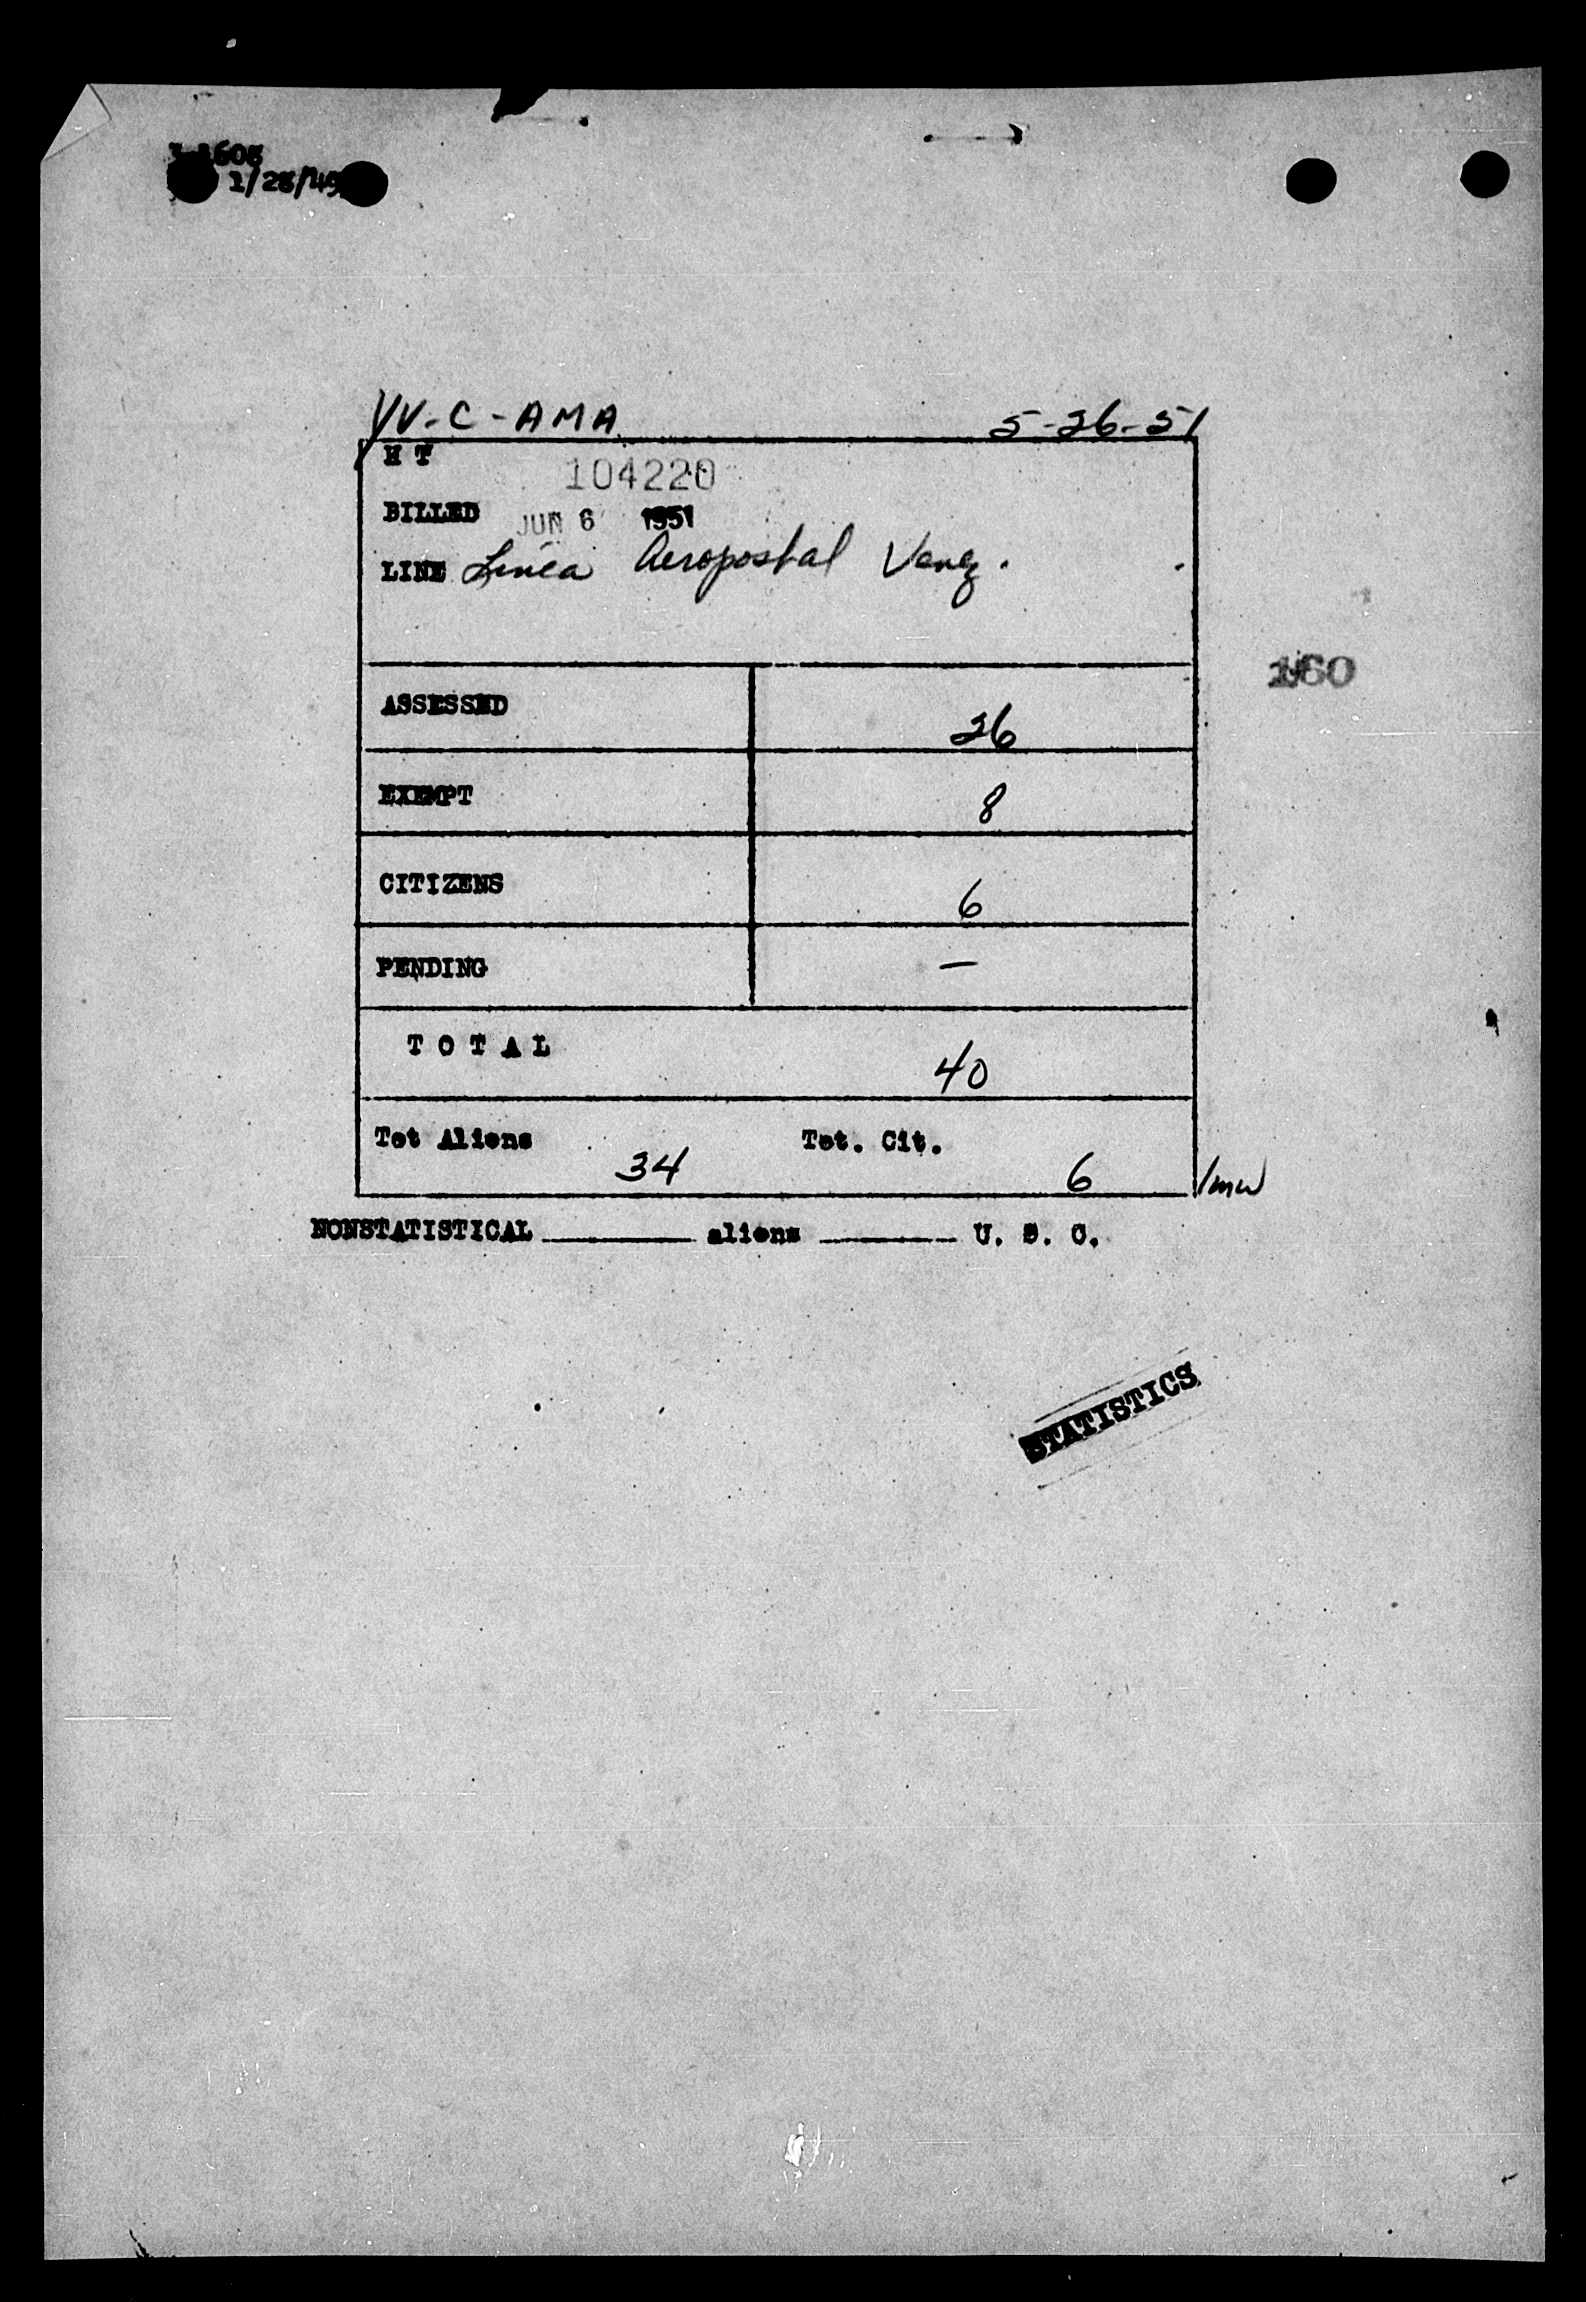 1/28/49
YV-C-AMA 5-26-51
H T
104220
BILLED JUN 6 1951
LINE Linea Aeropostal Venez.
ASSESSED 26
EXEMPT 8
CITIZENS 6
PENDING —
T O T A L 40
Tot Aliens 34 Tot. Cit. 6 /mw
NONSTATISTICAL ______ aliens ______ U. S. C.
STATISTICS